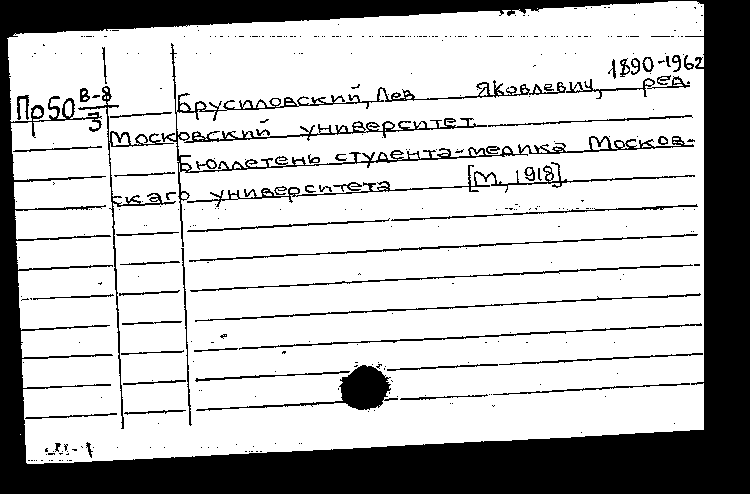 1890-1962
Пр50 В-8/3 Брусиловский, Лев Яковлевич, ред.
Московский университет.
Бюллетень студента-медика Москов-
скаго университета [М., 1918].